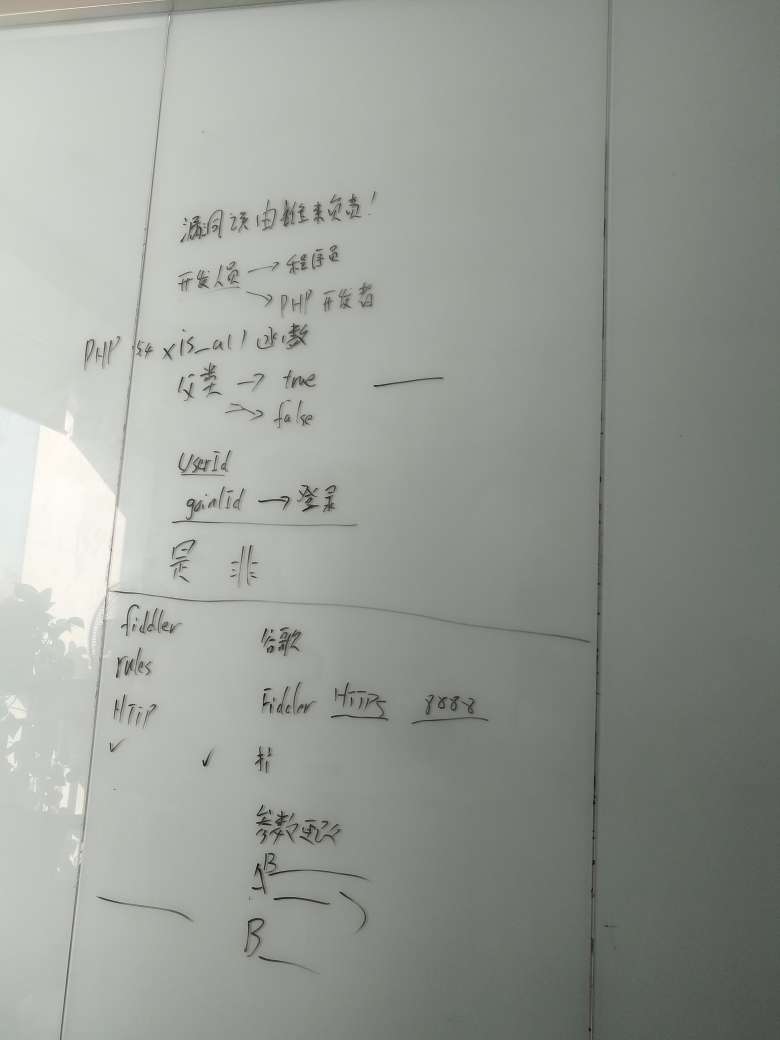 漏洞该由谁来负责!
开发人员 → 程序员
→ PHP 开发者
PHP 5.4 x is_a() 函数
父类 → true
→ false
UserId
→ 登录
是 非
fiddler 谷歌
rules
HTTP Fiddler HTTPS 8888
✓ ✓
参数更改
B
B